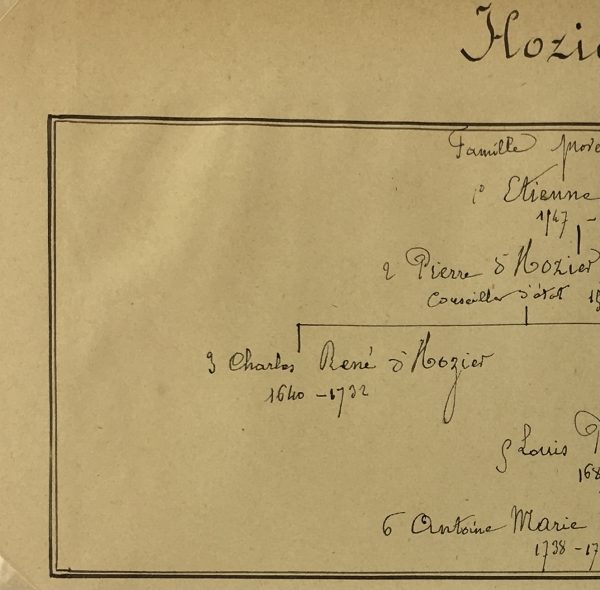 Hozie
Famille prove
1° Etienne
1547 -
2 Pierre d'Hozier
Conseiller d'état 15
3 Charles René d'Hozier
1640 - 1732
5 Louis P
168
6 Antoine Marie
1738 - 17